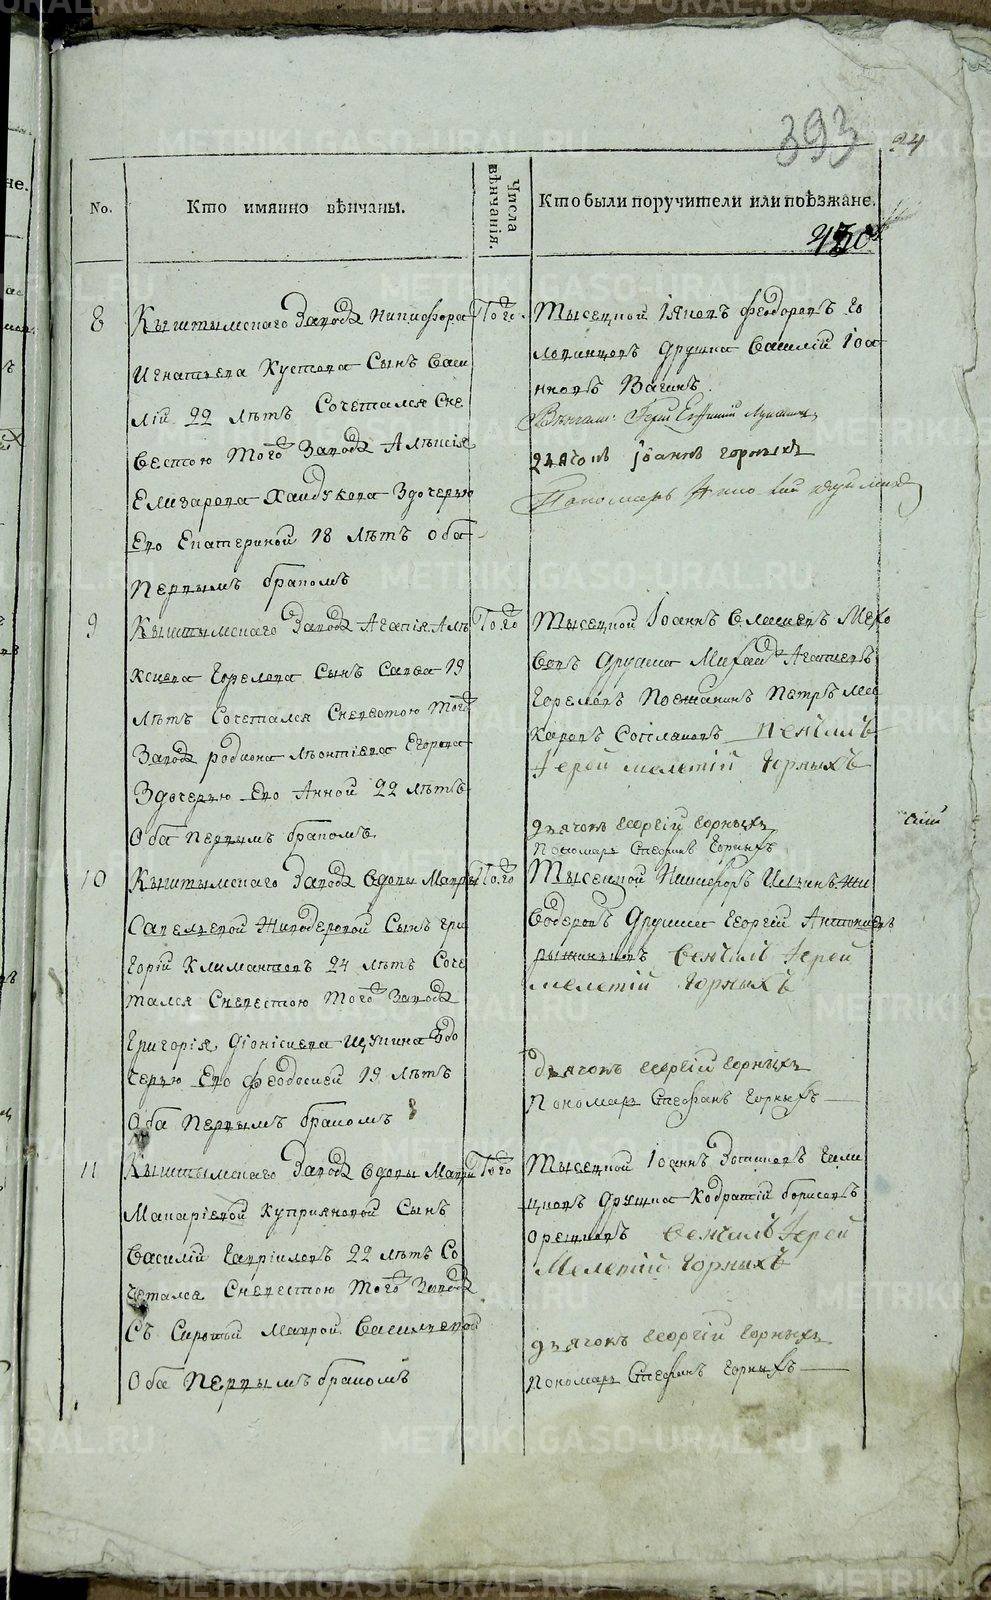 393
24
No.
Кто имянно вѣнчаны.
Числа вѣнчанія.
Кто были поручители или поѣзжане.
430
8
Кыштымскаго Завода Никифора
Игнатьева Кустова Сынъ Васи
лій 22 лѣтъ Сочетался Сне
вестою Того Завода Алѣксія
Елизарова Хайдукова Здочерью
Его Екатериной 18 лѣтъ Оба
первымъ бракомъ
Того
Тысецкой Іяковъ Феодоровъ Го
ловинцовъ Дружка Василій Іоа
нновъ Вагинъ
Дьячокъ Іоаннъ Горныхъ
Пономарь
9
Кыштымскаго Завода Агапія Алѣ
ксіева Горелова Сынъ Савва 19
лѣтъ Сочетался Сневестою того
Завода родиона лѣонтіева Егорова
Здочерью Его Анной 22 лѣтъ
Оба первымъ бракомъ
Того
Тысецкой Іоаннъ
Дружка
Гореловъ Поезжанинъ Петръ Ма
каровъ Венчалъ
Іерей мелетій Горныхъ
дьячокъ георгій горныхъ
пономарь Стефанъ Горныхъ
10
Кыштымскаго Завода Вдовы Мавры
Савельевой Живодеровой Сынъ гри
горій Климантовъ 24 лѣтъ Соче
тался Сневестою Того Завода
Григорія Діонісиева Щукина Здо
черью Его Феодосией 19 лѣтъ
Оба Первымъ бракомъ
Того
Тысецкой Никифоръ Ильинъ Жи
водеровъ Дружка Георгій Антониевъ
Венчалъ Іерей
мелетій Горныхъ
дьячокъ георгій горныхъ
пономарь Стефанъ Горныхъ
11
Кыштымскаго Завода Вдовы Мавры
Макаріевой Куприяновой Сынъ
Василій Гавріиловъ 22 лѣтъ Со
четался Сневестою Того Завода
Съ Сиротой Маврой Васильевой
Оба Первымъ бракомъ
Того
Тысецкой Іоаннъ
Дружка Кодратій борисовъ
Венчалъ Іерей
Мелетій Горныхъ
дьячокъ георгій горныхъ
пономарь Стефанъ Горныхъ
METRIKI.GASO-URAL.RU